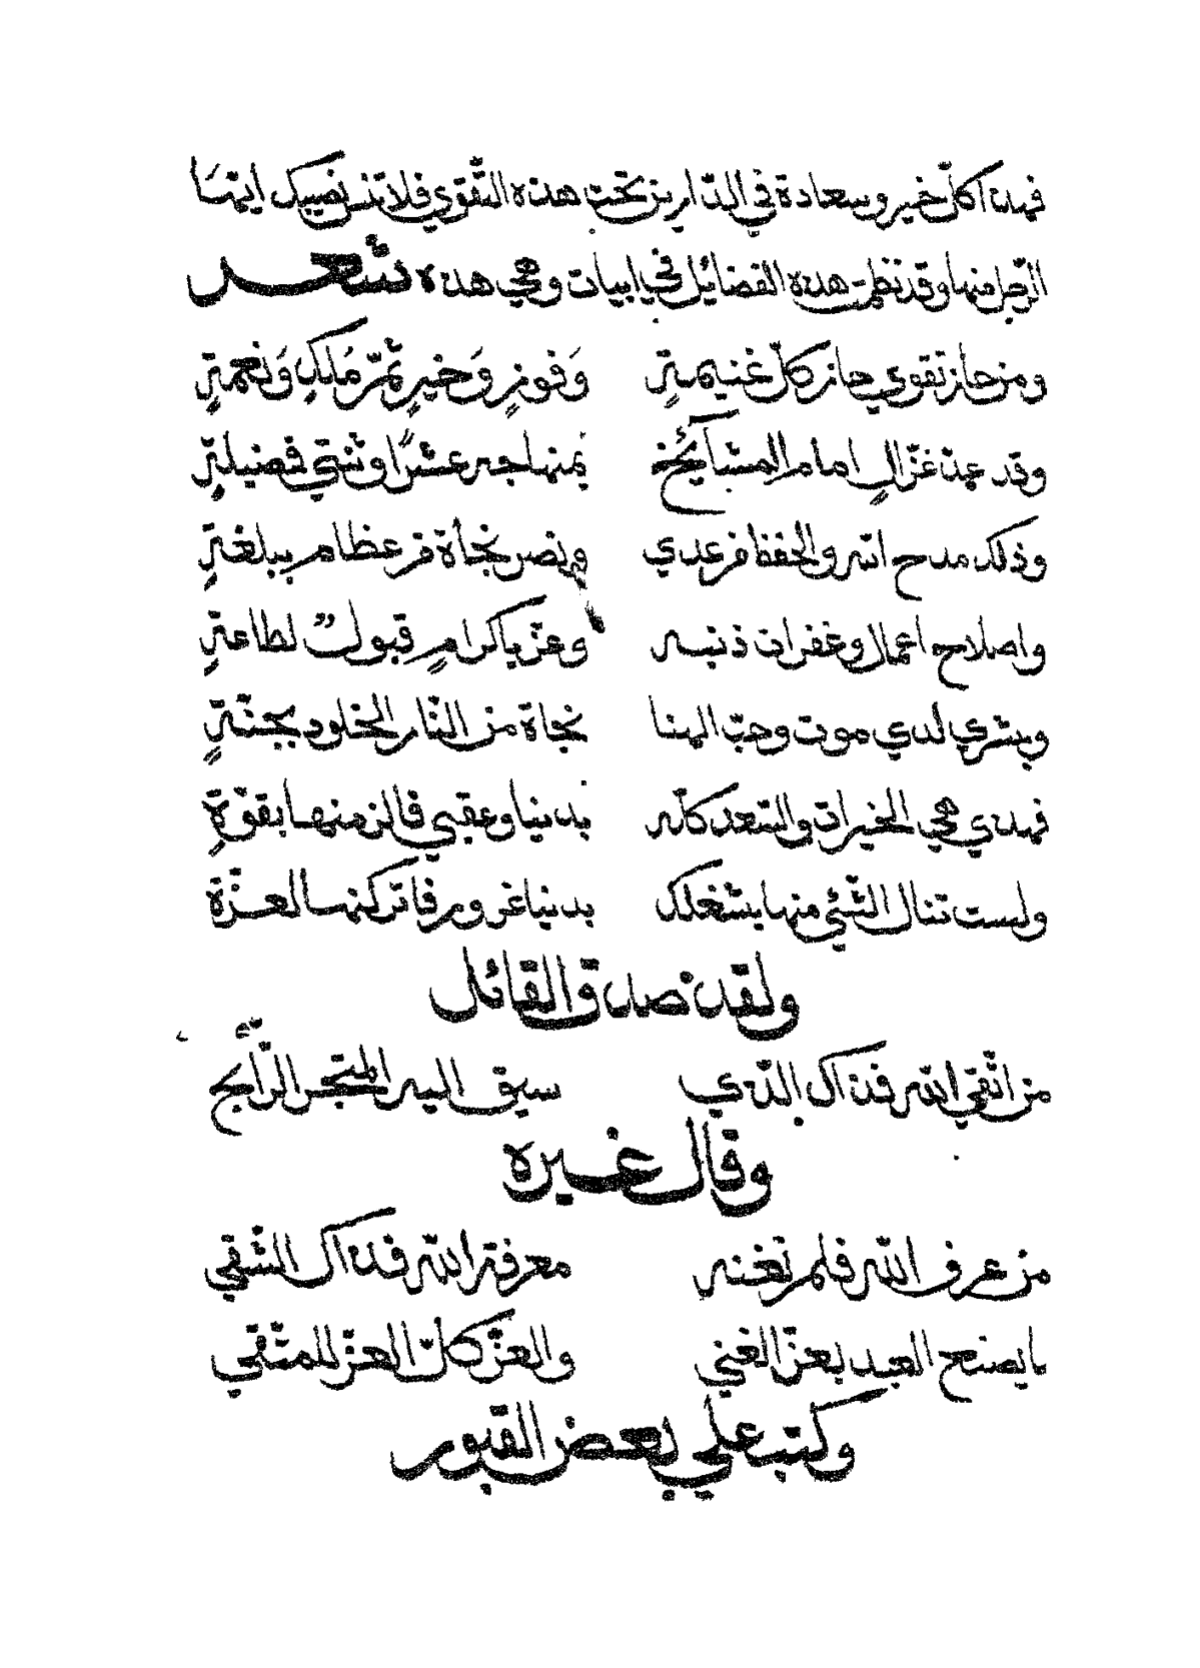 فهذا كلّ خير وسعادة في الدّارين تحت هذه التّقوي فلا تنس نصيبك ايّها
الرّجل منها وقد نظمت هذه الفضائل في ابيات وهي هذه شعر
ومن حاز تقوي حاز كلّ غنيمةٍ وَفوزٍ وَخيرٍ ثمّ مُلكٍ وَنعمةٍ
وقد عدّ غزّالٍ امام المشآئخ بمنهاجه عشرًا وشتي فضيلةٍ
وذلك مدح الله والحفظ من عدي ونصر نجاة من عظام ببلغةٍ
واصلاح اعمال وغفران ذنبه وعزّ باكرامٍ قبولٌ لطاعةٍ
وبشري لدي موت وحبّ الهنا نجاة من النّار الخلود بجنّةٍ
فهذي هي الخيرات والسّعد كلّه بدنيا وعقبي فالزمنها بقوّةٍ
ولست تنال الشّئي منها بشغلك بدنيا غرور فاتركنها لعزّة
ولقد صدق القائل
من اتّقي الله فذاك الّذي سيق اليه المتجر الرّابح
وقال غيره
من عرف الله فلم تغنه معرفة الله فذاك الشّقي
ما يصنع العبد بعزّ الغني والعزّ كلّ العزّ للمتّقي
وكتب علي بعض القبور